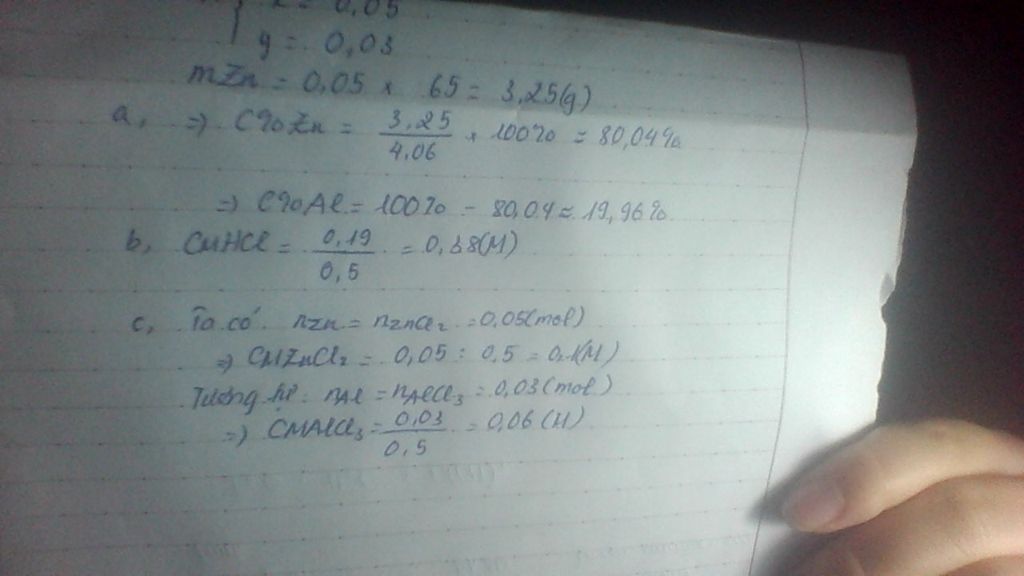 x = 0,05
y = 0,03
mZn = 0,05 x 65 = 3,25(g)
a, => C%Zn = 3,25/4,06 x 100% = 80,04%
=> C%Al = 100% - 80,04 = 19,96%
b, CMHCl = 0,19/0,5 = 0,38(M)
c, Ta có: nZn = nZnCl2 = 0,05(mol)
=> CMZnCl2 = 0,05 : 0,5 = 0,1(M)
Tương tự: nAl = nAlCl3 = 0,03(mol)
=> CMAlCl3 = 0,03/0,5 = 0,06(M)